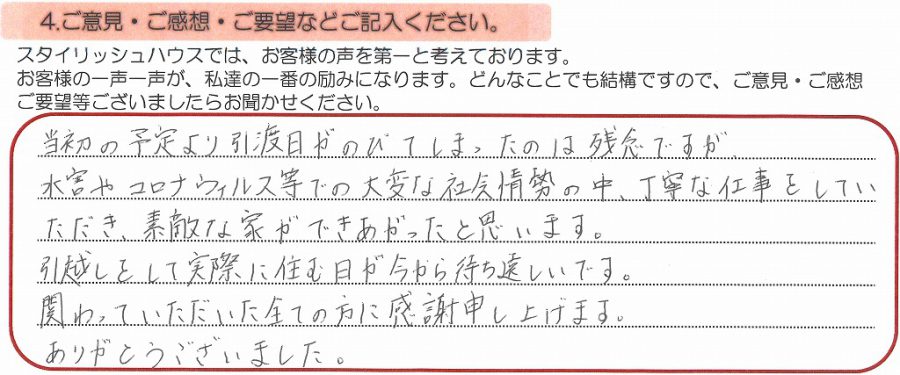 4.ご意見・ご感想・ご要望などご記入ください。
スタイリッシュハウスでは、お客様の声を第一と考えております。
お客様の一声一声が、私達の一番の励みになります。どんなことでも結構ですので、ご意見・ご感想
ご要望等ございましたらお聞かせください。
当初の予定より引渡日がのびてしまったのは残念ですが、
水害やコロナウィルス等での大変な社会情勢の中、丁寧な仕事をしてい
ただき、素敵な家ができあがったと思います。
引越しをして実際に住む日が今から待ち遠しいです。
関わっていただいた全ての方に感謝申し上げます。
ありがとうございました。